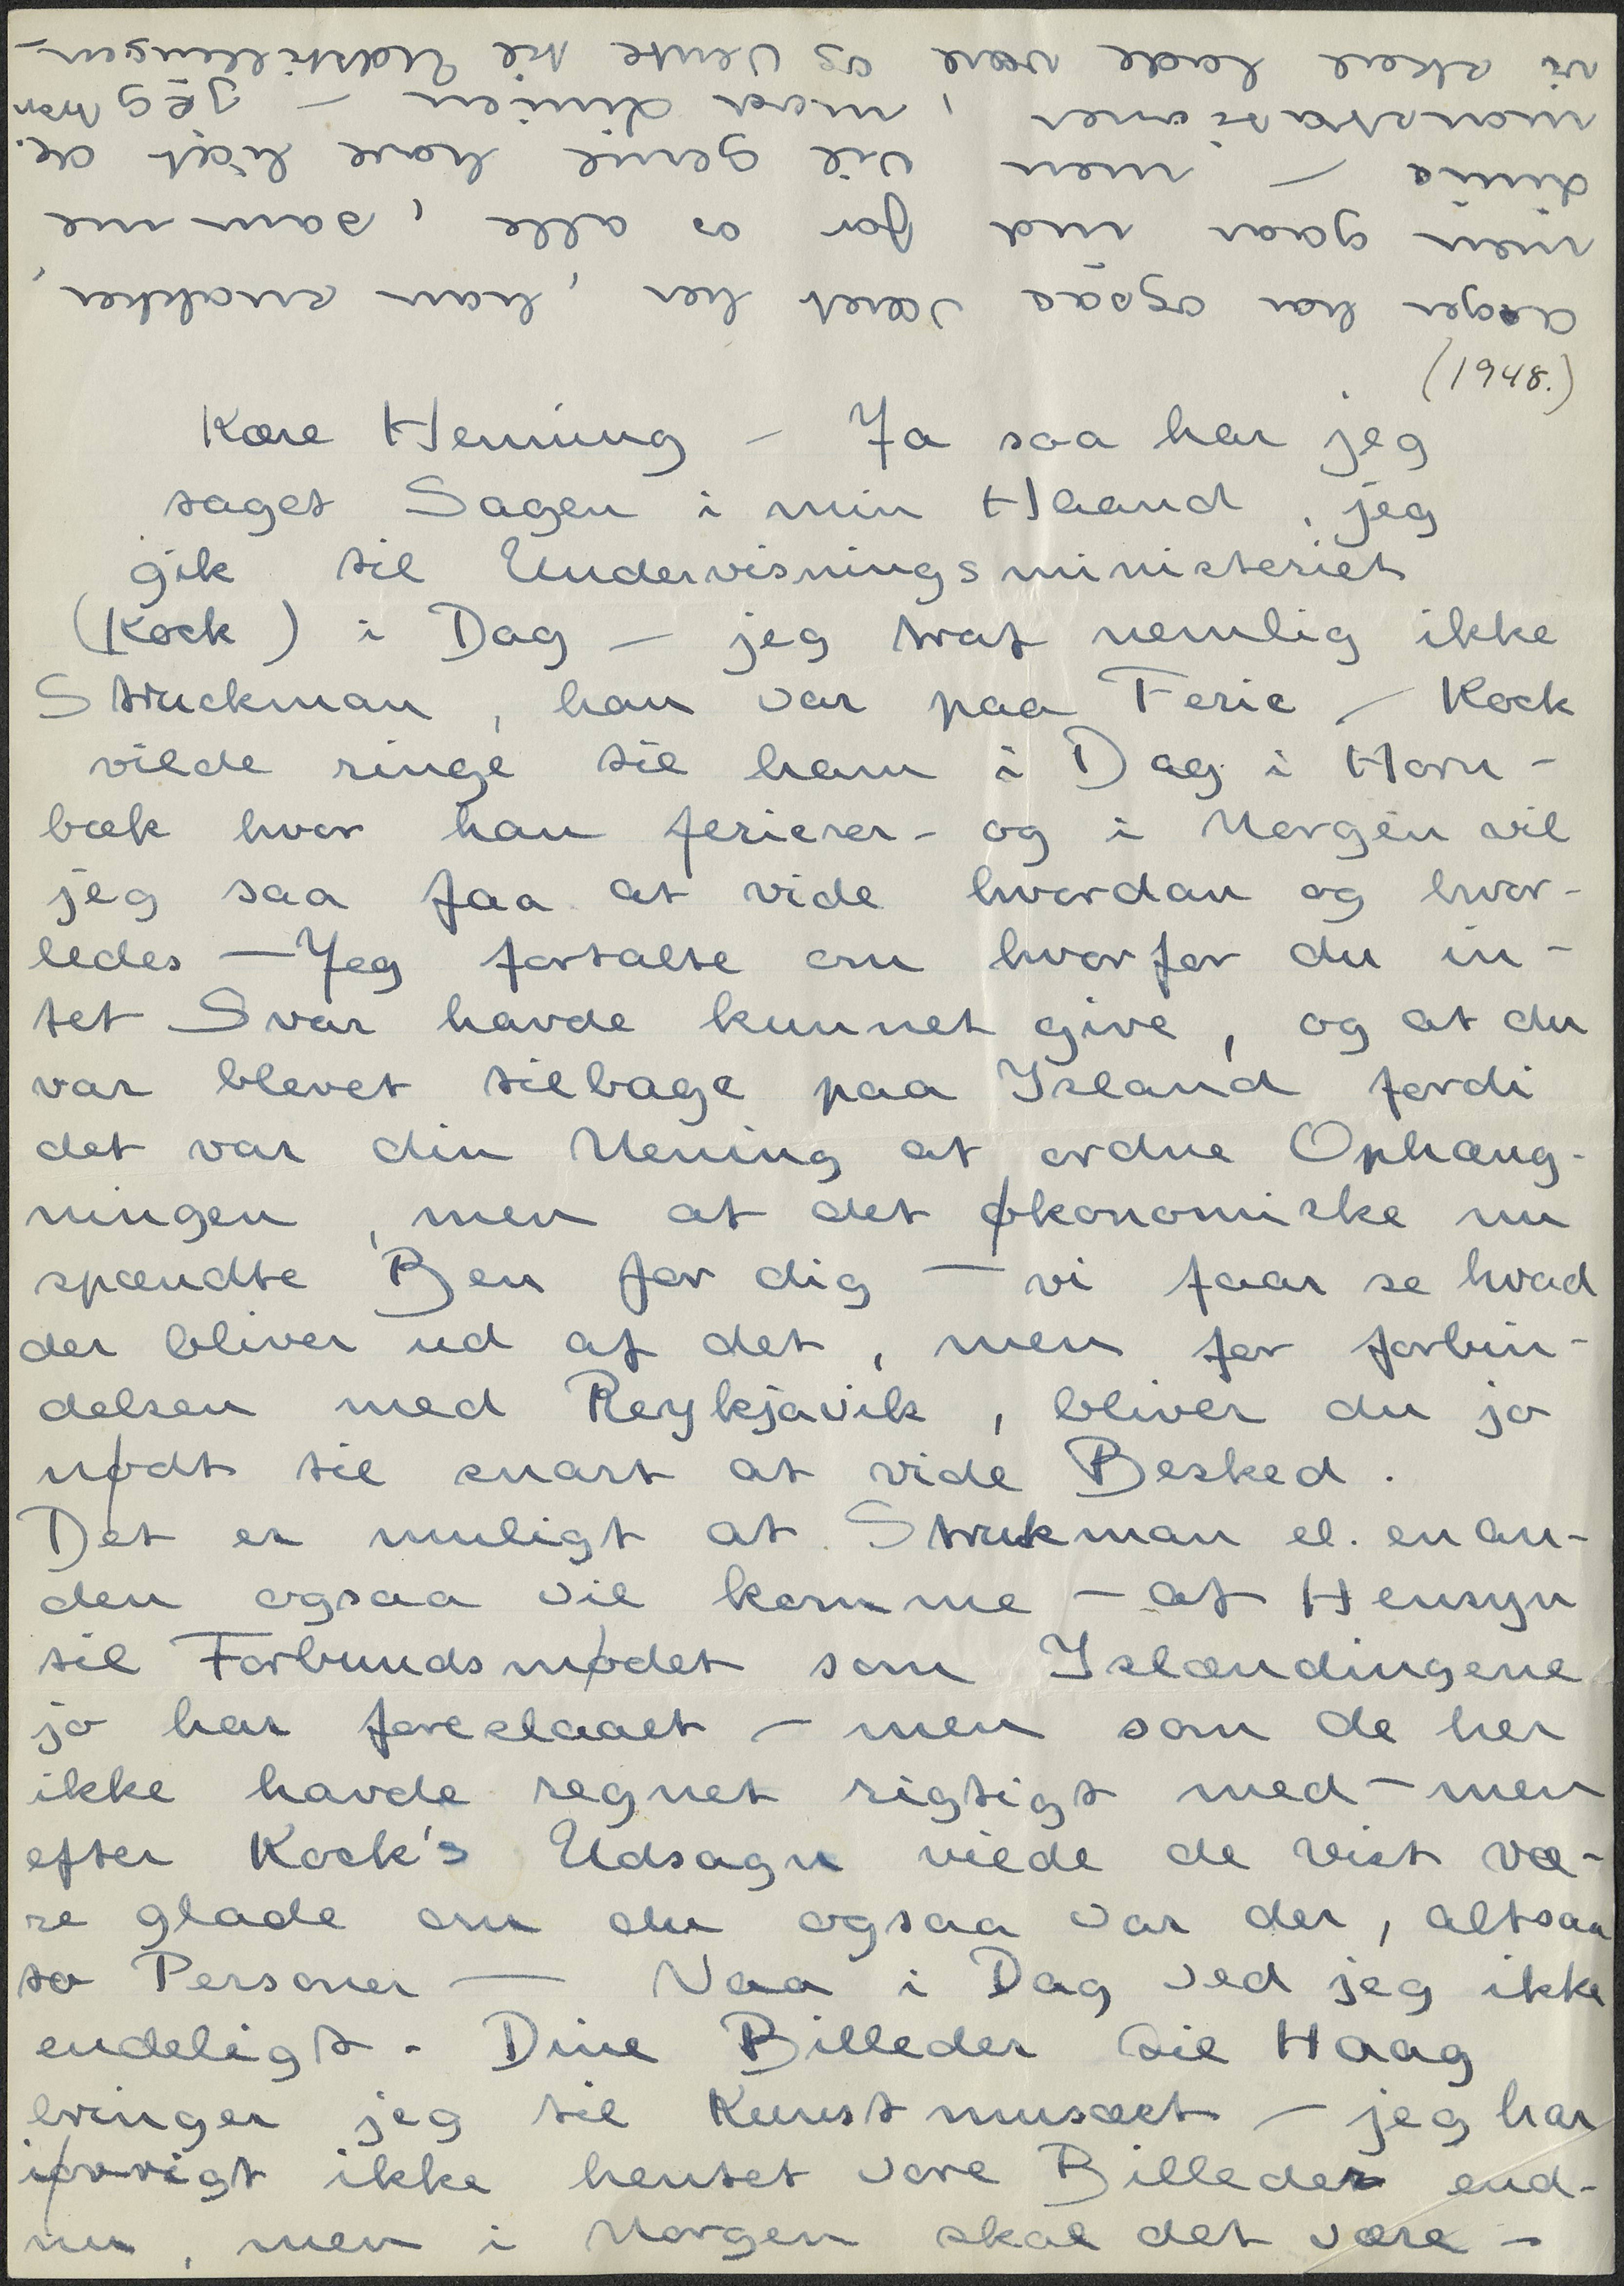 (1948.)
Kære Henning – Ja saa har jeg
taget Sagen i min Haand , jeg
gik til Undervisningsministeriet
(Kock) i Dag – jeg traf nemlig ikke
Struckman , han var paa Ferie – Kock
vilde ringe til ham i Dag i Horn-
bæk hvor han ferierer – og i Morgen vil
jeg saa faa at vide hvordan og hvor-
ledes – Jeg fortalte om hvorfor du in-
tet Svar havde kunnet give , og at du
var blevet tilbage paa Island fordi
det var din Mening at ordne Ophæng-
ningen , men at det økonomiske nu
spændte Ben for dig – vi faar se hvad
der bliver ud af det , men for forbin-
delsen med Reykjavik , bliver du jo
nødt til snart at vide Besked .
Det er muligt at Strukman el. en an-
den ogsaa vil komme – af Hensyn
til Forbundsmødet som Islændingene
jo har foreslaaet – men som de her
ikke havde regnet rigtigt med – men
efter Kock's Udsagn vilde de vist væ-
re glade om du ogsaa var der , altsaa
to Personer – Naa i Dag ved jeg ikke
endeligt . Dine Billeder til Haag
bringer jeg til Kunstmusæet – jeg har
iøvrigt ikke hentet vore Billeder end-
nu , men i Morgen skal det være –
Asger har ogsaa været her , han snakker ,
gaar ind for os alle , som
men vil gerne have lidt de-
monstrationer , med – jeg tror
vi skal lade være og vente til Udstillingen –